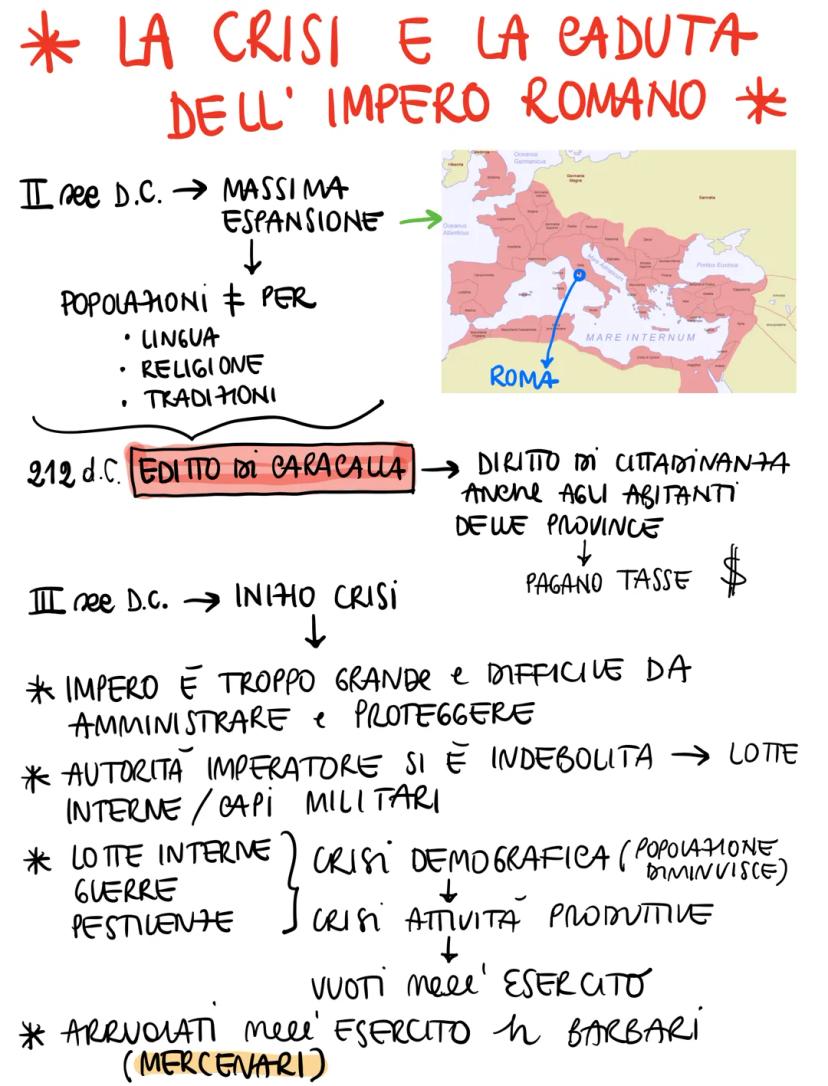 * LA CRISI E LA CADUTA
DELL' IMPERO ROMANO *
II sec D.C. → MASSIMA
ESPANSIONE →
↓
POPOLAZIONI ≠ PER
• LINGUA
• RELIGIONE
• TRADIZIONI
Oceanus
Germanicus
Germania
Magna
Sarmatia
Oceanus
Atlanticus
Mare Adriaticum
Pontus Euxinus
MARE INTERNUM
ROMA
212 d.C. EDITTO DI CARACALLA → DIRITTO DI CITTADINANZA
ANCHE AGLI ABITANTI
DELLE PROVINCE
↓
PAGANO TASSE $
III sec D.C. → INIZIO CRISI
↓
* IMPERO È TROPPO GRANDE e DIFFICILE DA
AMMINISTRARE e PROTEGGERE
* AUTORITÀ IMPERATORE SI È INDEBOLITA → LOTTE
INTERNE / CAPI MILITARI
* LOTTE INTERNE
GUERRE
PESTILENZE
CRISI DEMOGRAFICA (POPOLAZIONE
DIMINUISCE)
↓
CRISI ATTIVITÀ PRODUTTIVE
↓
VUOTI nell' ESERCITO
* ARRUOLATI nell' ESERCITO BARBARI
(MERCENARI)